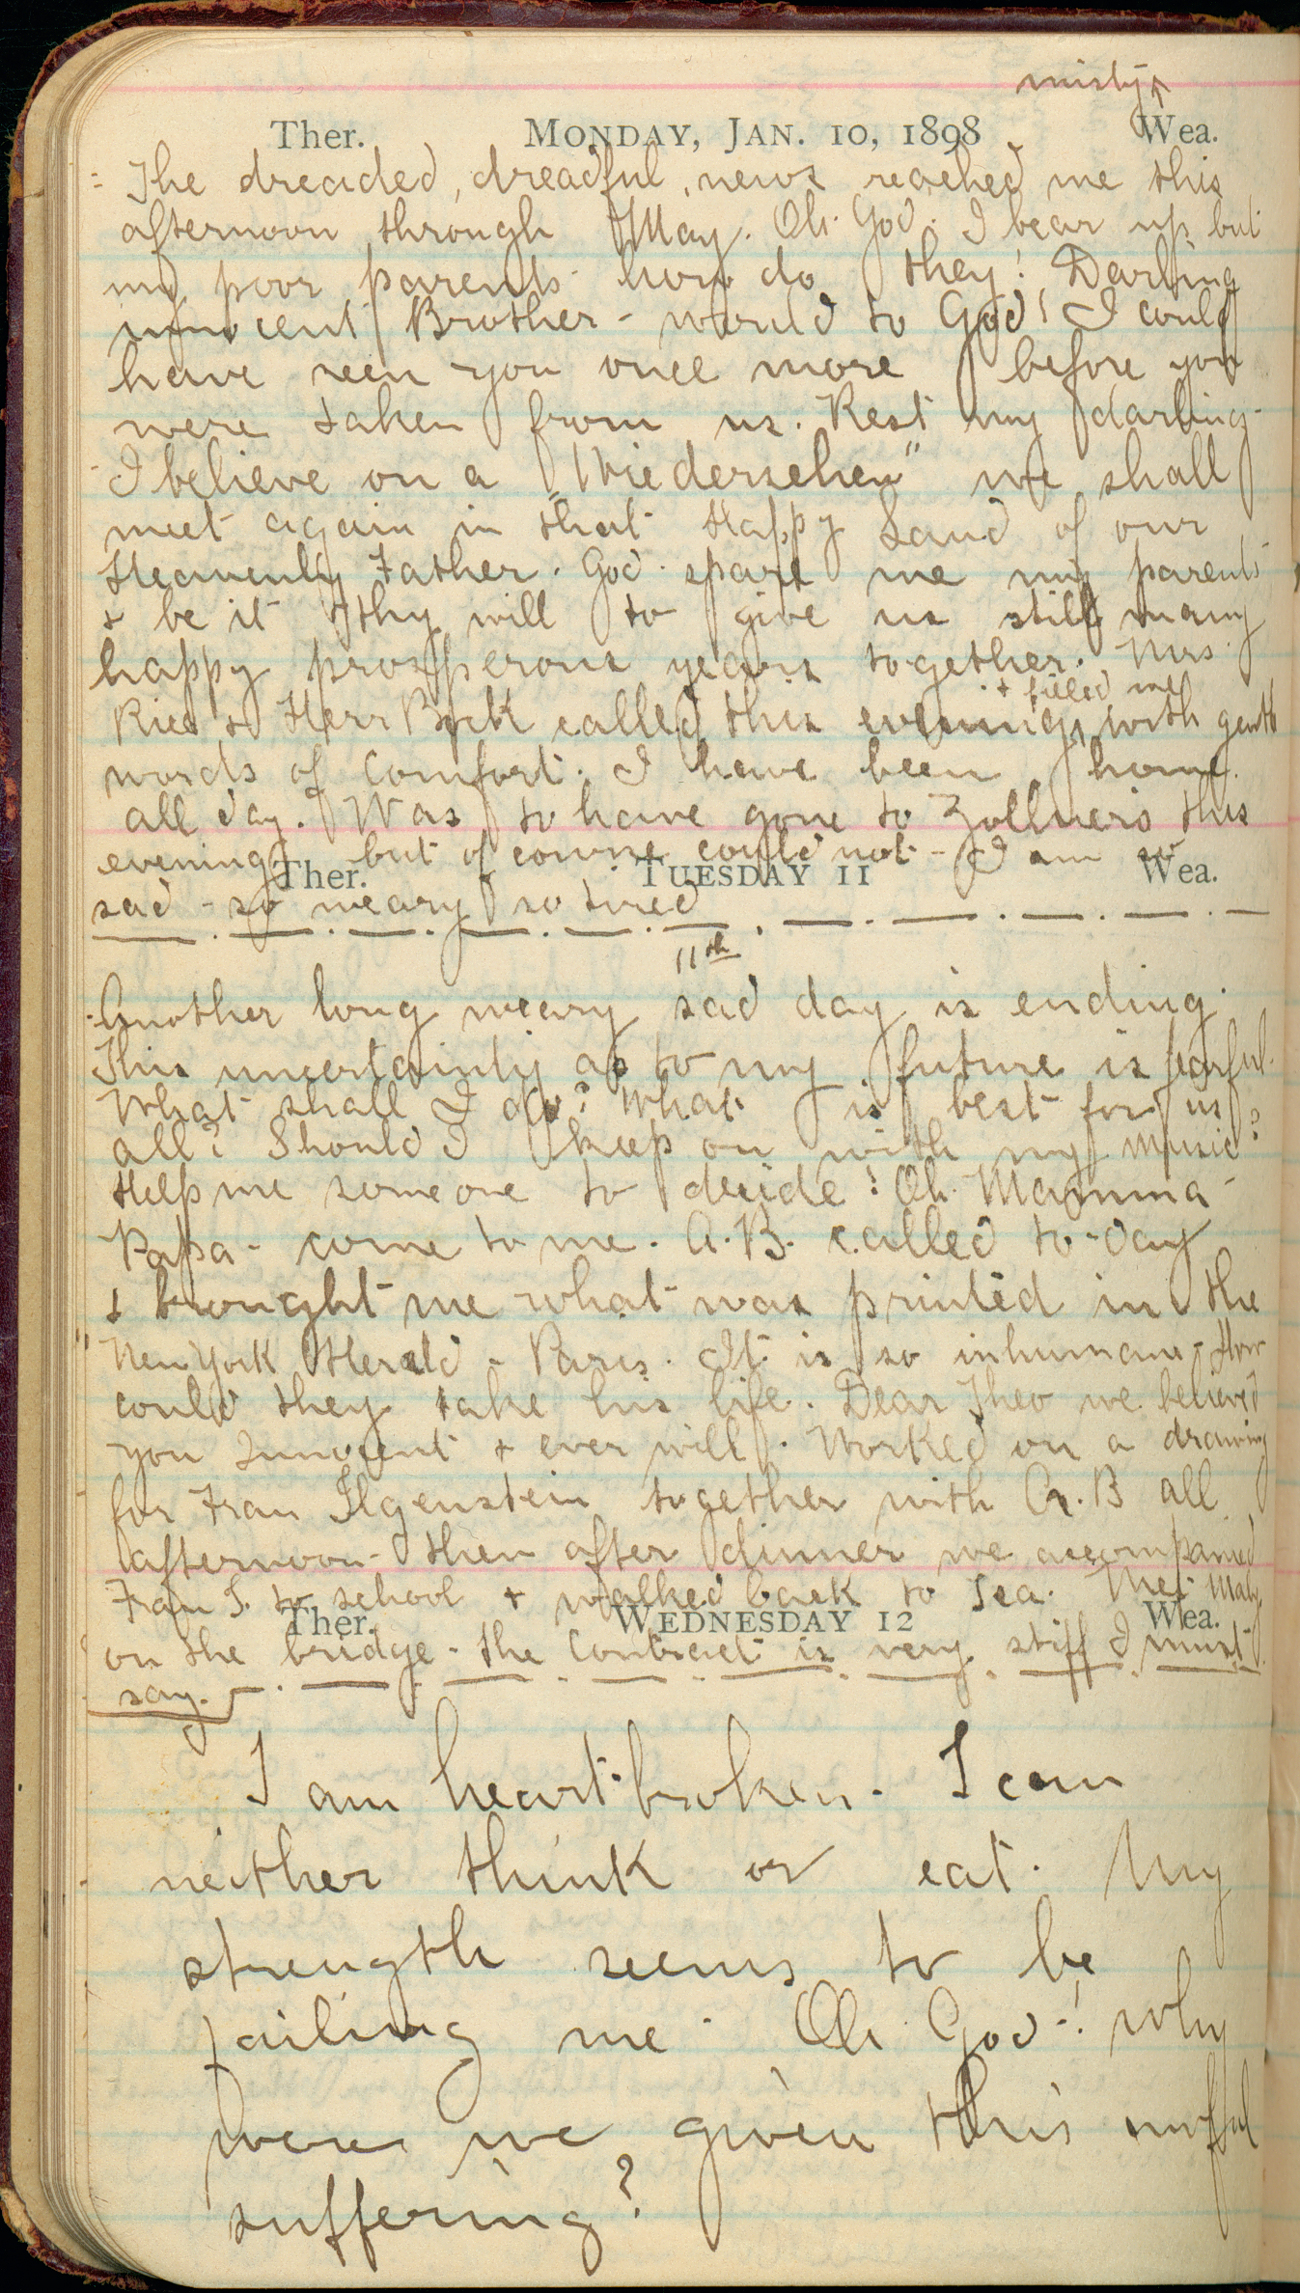 misty
Ther. MONDAY, JAN. 10, 1898 Wea.
The dreaded, dreadful, news reached me this
afternoon through May. Oh. God. I bear up but
my poor parents - how do they! Darling
innocent Brother - would to God! I could
have seen you once more before you
were taken from us. Rest my darling -
I believe on a "Wiedersehen" we shall
meet again in that Happy Land of our
Heavenly Father. God. spare me my parents
+ be it thy will to give us still many
happy prosperous years together. Mrs.
+ filled me
Ries + Herr Bock called this evening, with gentle
words of comfort. I have been home
all day. Was to have gone to Zollners this
evening but of course could not - I am so
Ther. TUESDAY 11 Wea.
sad - so weary so tired
11th
Another long weary sad day is ending.
This uncertainty as to my future is fearful.
What shall I do? What is best for us
all? Should I keep on with my music?
Help me someone to decide! Oh. Mamma -
Papa - come to me. A.B. called to-day
+ brought me what was printed in the
"New York Herald - Paris. It is so inhumane - How
could they take his life. Dear Theo we believed
you Innocent + ever will. Worked on a drawing
for Frau Ilgenstein together with A.B all
afternoon - then after dinner we accompanied
Frau I. to school + walked back to Tea. Met May
Ther. WEDNESDAY 12 Wea.
on the bridge - the Contract is very stiff I must
say.
I am heart-broken. I can
neither think or eat. My
strength seems to be
failing me. Oh. God! why
were we given this awful
suffering?